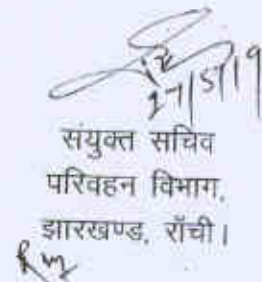 27/5/19
संयुक्त सचिव
परिवहन विभाग,
झारखण्ड, राँची।